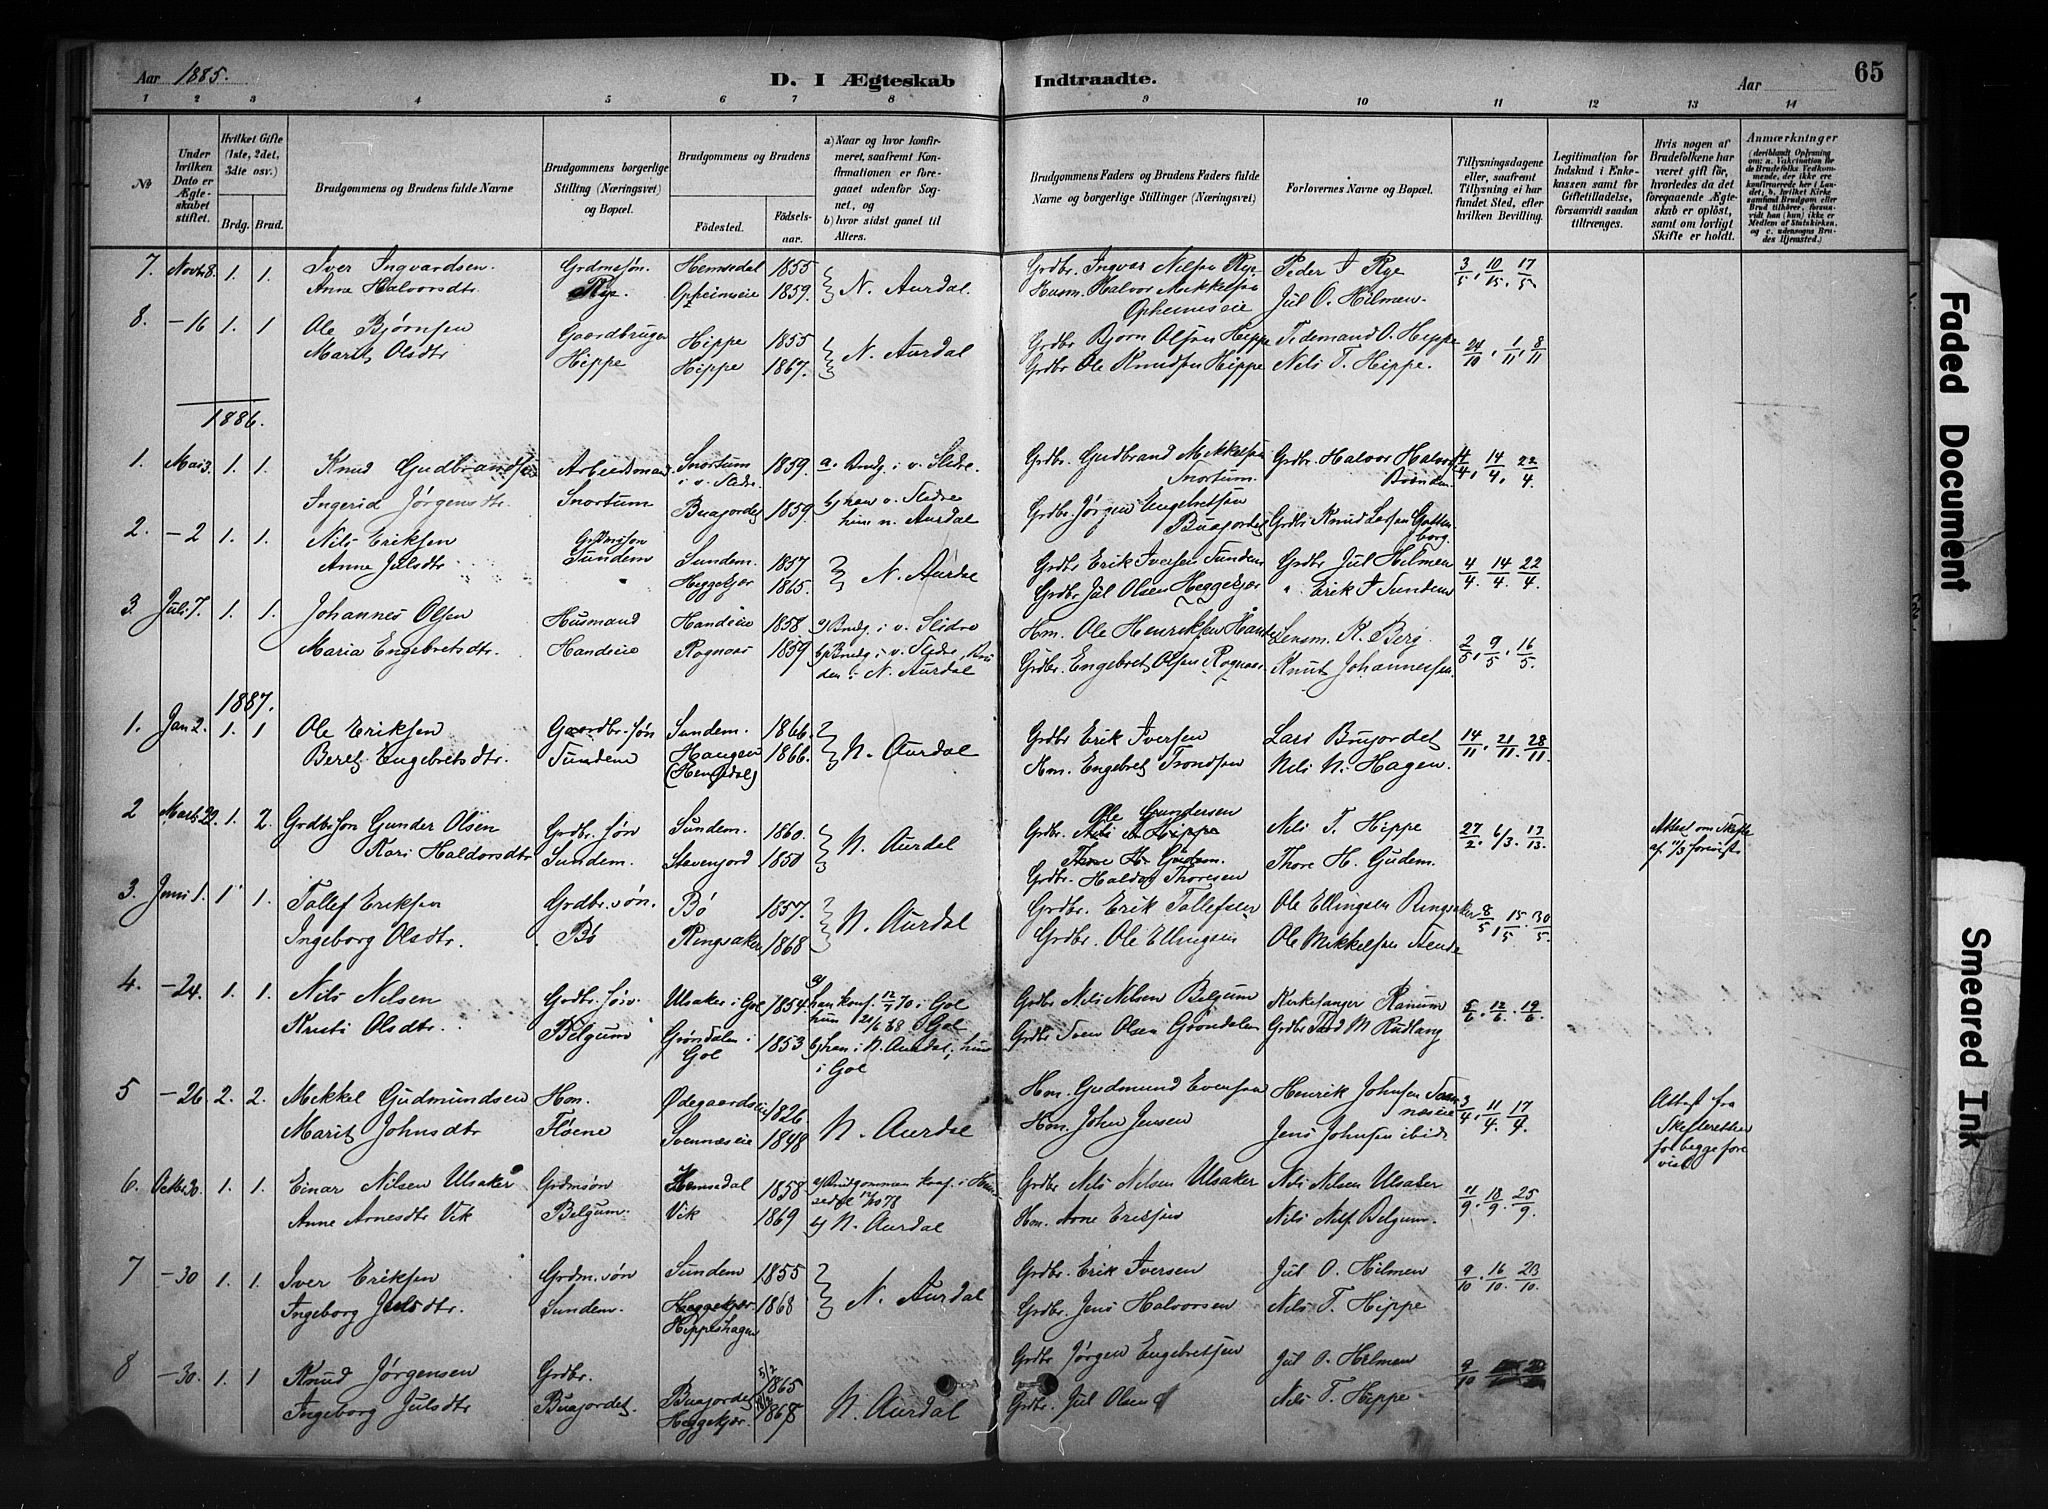 Aar 1885.
D. I Ægteskab Indtraadte.
Aar
65
1 2 3 4 5 6 7 8 9 10 11 12 13 14
No
Under hvilken Dato er Ægteskabet stiftet.
Hvilket Gifte (1ste, 2det, 3die osv.)
Brdg. Brud.
Brudgommens og Brudens fulde Navne
Brudgommens borgerlige Stilling (Næringsvei) og Bopæl.
Brudgommens og Brudens
Födested.
Födsels-aar.
a) Naar og hvor konfirmeret, saafremt Konfirmationen er foregaaet udenfor Sognet, og
b) hvor sidst ganet til Alters.
Brudgommens Faders og Brudens Faders fulde Navne og borgerlige Stillinger (Næringsvei)
Forlovernes Navne og Bopæl.
Tillysningsdagene eller, saafremt Tillysning ei har fundet Sted, efter hvilken Bevilling.
Legitimation for Indskud i Enkekassen samt for Giftetilladelse, forsaavidt saadan tiltrænges.
Hvis nogen af Brudefolkene har været gift för, hvorledes da det foregaaende Ægteskab er oplöst, samt om lovligt Skifte er holdt.
Anmærkninger
7. Novbr 8. 1. 1. Iver Ingvardsen. Grdmsjøn. Hemsedal 1855 N. Aurdal. Grdbr. Ingvar Nilsen Rye Peder I Rye 3/5, 10/15, 17/5
Anne Halvorsdtr Rye. Opheimseie 1859. Husm. Halvor Mekkelsen Opheimseie Jul O. Hilmen.
8. -16 1. 1 Ole Bjørnsen Gaardbruger Hippe 1855 N. Aurdal Grdbr Bjørn Olsen Hippe Tidemand O. Hippe 24/10, 1/11, 8/11
Marit Olsdtr Hippe Hippe 1867. Grdbr Ole Knudsen Hippe Nils T. Hippe.
1886.
1. Mai 3. 1. 1. Knud Gudbrandsen Arbeidsmand Snortum i v. Slidre. 1859. a. Brudg. i v. Slidre. Grdbr. Gudbrand Mekkelsen Snortum. Grdbr. Halvor Halvors 4/4, 14/4, 22/4
Ingerid Jörgensdtr. Snortum Buajordet 1859. b) han v. Slidre hun n. Aurdal Grdbr. Jörgen Engebretsen Buajordet Grdbr Knud Larsen
2. -2 1. 1. Nils Eriksen Grdmsøn Sundem. 1857 N. Aurdal Grdbr Erik Iversen Sundem Grdbr Jul Hilmen 4/4. 14/4. 22/4
Anne Julsdtr Sundem Heggekjær 1865. Grdbr Jul Olsen Heggekjær " Erik I Sundem
3. Juli 7. 1. 1. Johannes Olsen Husmand Handeie 1858. a) Brudg. i v. Slidre Hm. Ole Henriksen Lensm. K. Berg. 2/5, 9/5, 16/5.
Maria Engebretsdtr. Handeie Rognaas 1859 b) Brudg i v. Slidre, Bruden i N. Aurdal Grdbr. Engebret Olsen Rognaas Knut Johannessen.
1887.
1. Jan 2. 1. 1 Ole Eriksen Gaardbr.søn Sundem. 1866. N. Aurdal Grdbr Erik Iversen Lars Buajordet 14/11. 21/11. 28/11
Beret Engebretsdtr. Sundem Haugen (Hemsedal) 1866. Hm. Engebret Trondsen Nils N. Hagen.
2 Marts 22. 1. 2. Grdbrsøn Gunder Olsen Grdbr. søn Sundem. 1860. N. Aurdal Grdbr. Ole Gundersen Nils T. Hippe 27/2 6/3. 13/13. Attest om Skifte af 11/3 forevist
Kari Haldorsdtr Sundem. Stavenjord 1850 Grdbr. Haldor Thoresen Thore H. Gudem.
3. Juni 1. 1 1. Tollef Eriksen Grdbr.søn. Bö 1857. N. Aurdal Grdbr. Erik Tollefsen Ole Ellingsen Ringsaker 8/5, 15/5. 30/5.
Ingeborg Olsdtr. Bö Ringsaker 1868 Grdbr. Ole Ellingsen Ole Mikkelsen Stende
4. -24. 1. 1. Nils Nilsen Grdbr. søn Ulsaker i Gol 1854. a) han konf. 12/7 70 i Gol Grdbr Nils Nilsen Belgum Kirkesanger Ranum 5/6. 12/6. 19/6.
Kristi Olsdtr. Belgum Gröndalen i Gol 1853 hun 21/6 68 i Gol b) han i N. Aurdal, hun i Gol Grdbr Sven Olsen Gröndalen Grdbr Tord M Rudlang
5 -26. 2. 2. Mekkel Gudmundsen Hm. Ødegaardseie 1826. N. Aurdal Hm. Gudmund Evensen Henrik Johnsen 3/4. 11/4. 17/4. Attest fra Skifteretten for begge forevist
Marit Johnsdtr Floene Svennæseie 1848 Hm. John Jensen Jens Johnsen ibid.
6. Octbr 30. 1. 1. Einar Nilsen Ulsaker Grdmsön Hemsedal 1858 a) Brudgommen konf. i Hemsedal 78 Grdbr Nils Nilsen Ulsaker Nils Nilsen Ulsaker 11/9. 18/9. 25/9.
Anne Arnesdtr Vik Belgum. Vik 1869 b) N. Aurdal Hm. Arne Eriksen Nils Nils. Belgum.
7 -30 1. 1. Iver Eriksen Grdm. søn Sundem 1855 N. Aurdal Grdbr. Erik Iversen Jul O. Hilmen 9/10. 16/10. 23/10.
Ingeborg Julsdtr. Sundem. Heggekjær Hippeshagen 1868 Grdbr. Jens Halvorsen Nils T. Hippe
8 -30. 1. 1 Knud Jørgensen Grdbr. Buajordet 5/2 1865 N. Aurdal Grdbr Jørgen Engebretsen Jul O. Hilmen 9/10
Ingeborg Julsdtr Buajordet. Heggekjær 1868 Grdbr. Jul Olsen Nils T. Hippe
Faded Document
Smeared Ink